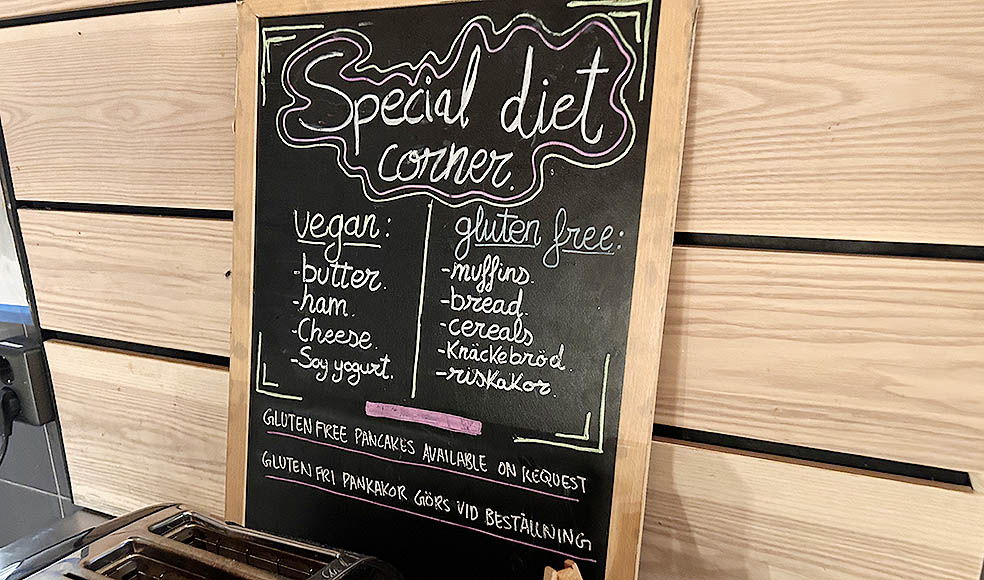 Special diet
corner.
vegan:
-butter.
-ham.
-Cheese.
-Soy yogurt.
gluten free:
-muffins.
-bread.
-cereals
-Knäckebröd.
-riskakor.
GLUTEN FREE PANCAKES AVAILABLE ON REQUEST
GLUTEN FRI PANKAKOR GÖRS VID BESTÄLLNING